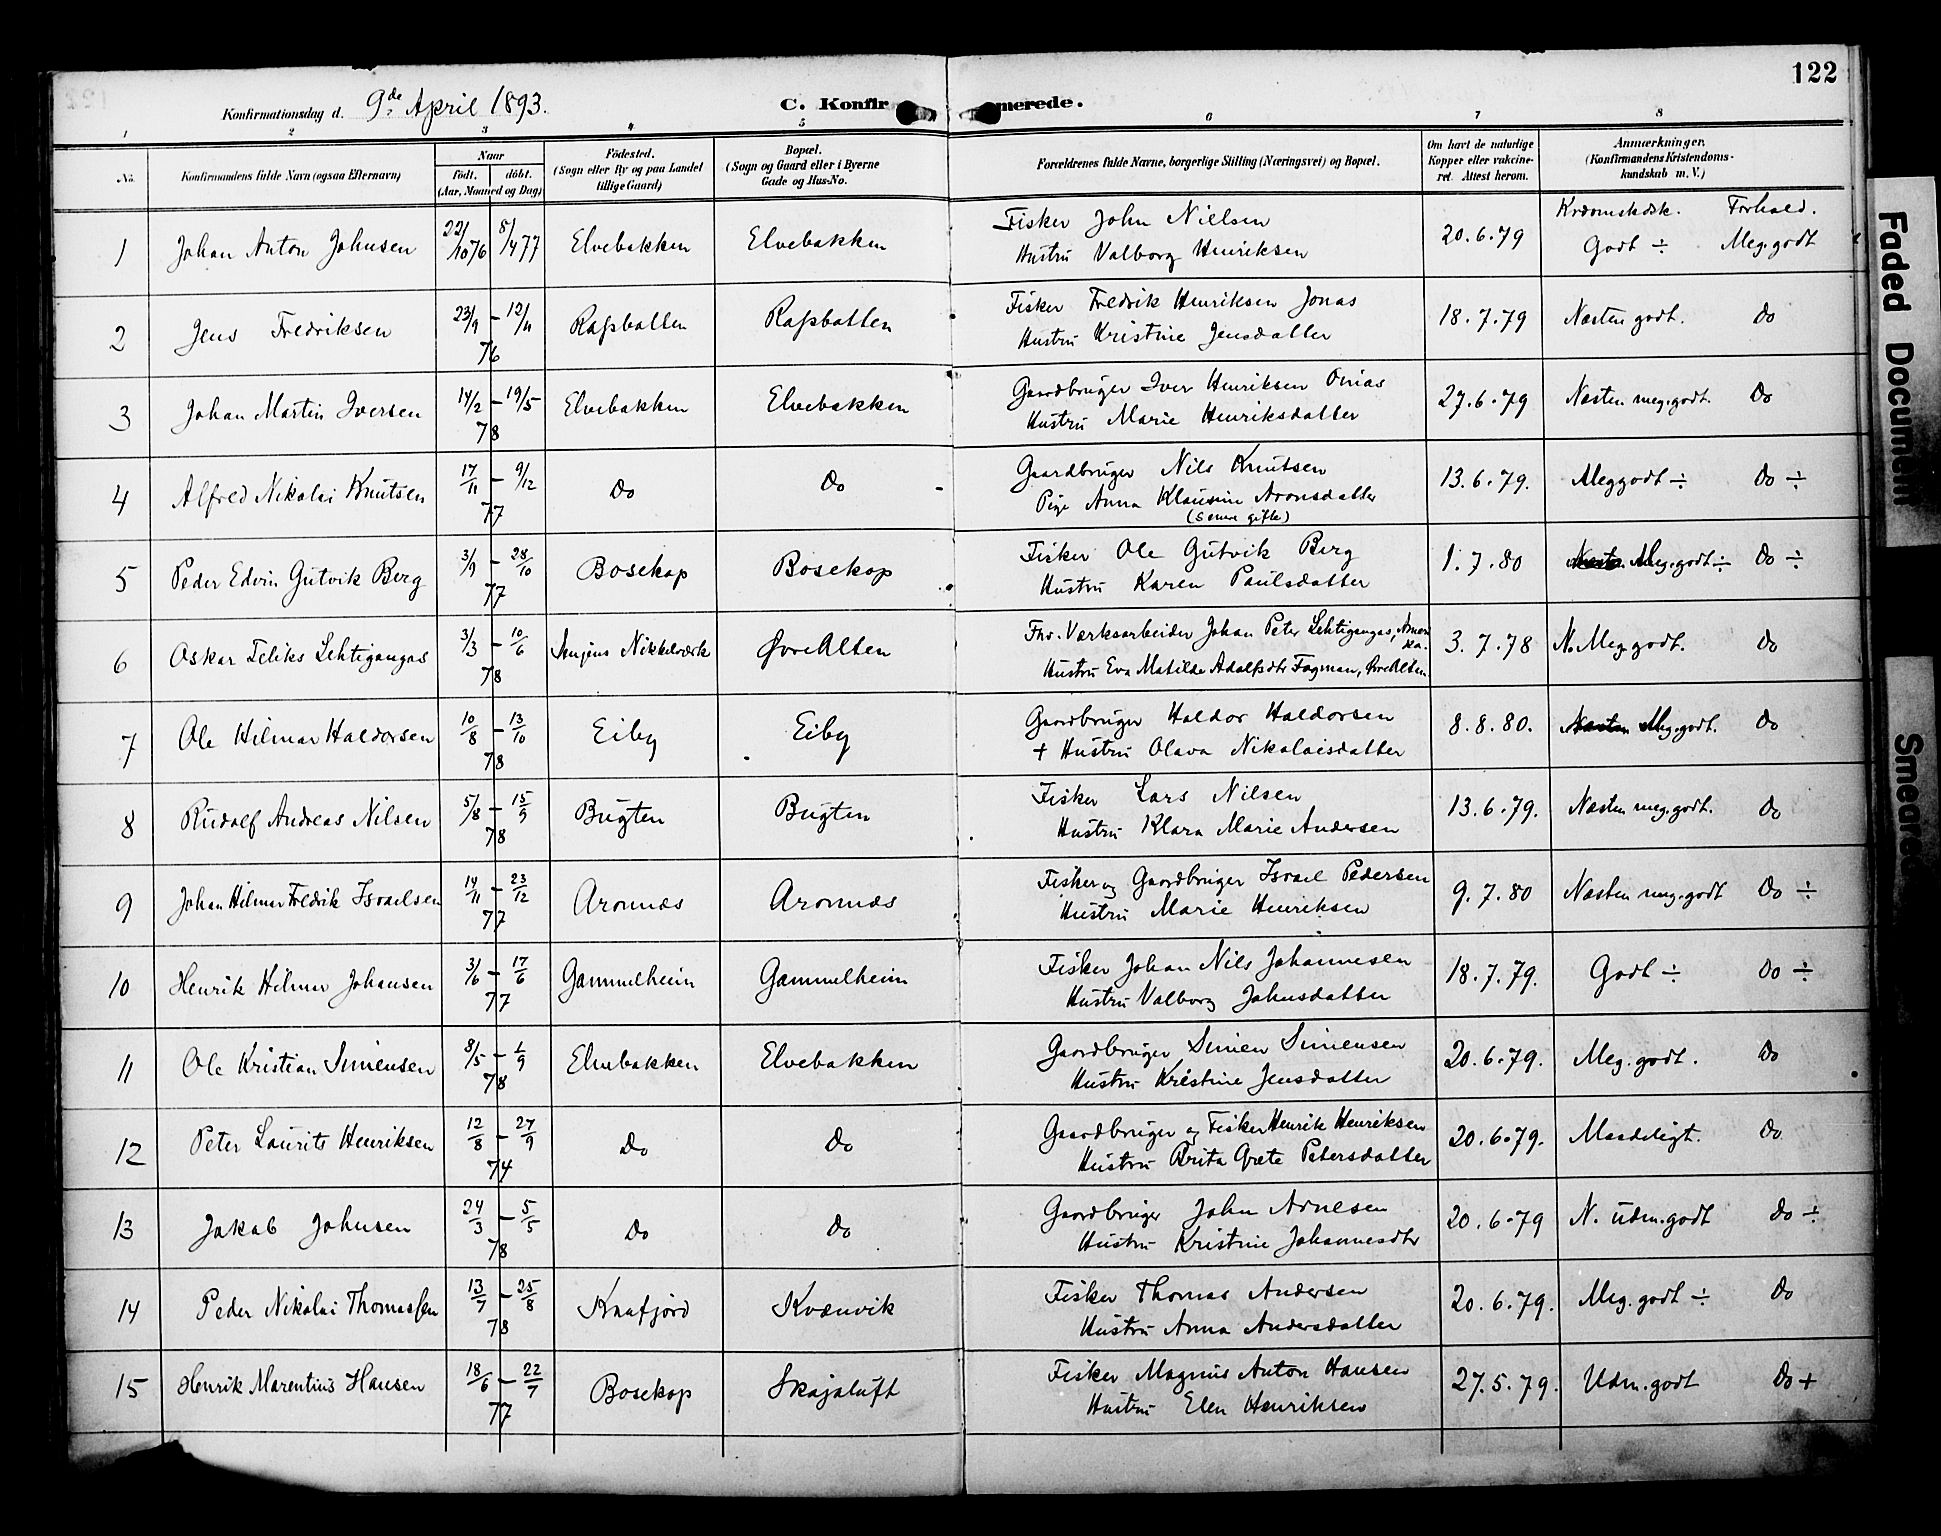 122
Konfirmationsdag d. 9de April 1893.
C. Konfirmerede.
1 2 3 4 5 6 7 8
No. Konfirmandens fulde Navn (ogsaa Efternavn)
Naar
födt. döbt.
(Aar, Maaned og Dag)
Födested.
(Sogn eller By og paa Landet
tillige Gaard)
Bopæl.
(Sogn og Gaard eller i Byerne
Gade og Hus-No.
Forældrenes fulde Navne, borgerlige Stilling (Næringsvei) og Bopæl.
Om havt de naturlige
Kopper eller vakcine-
ret. Attest herom.
Anmærkninger.
(Konfirmandens Kristendoms-
kundskab m. V.)
Krdomskdsk. Forhold.
1 Johan Anton Johnsen 22/10 76 8/4 77 Elvebakken Elvebakken Fisker John Nielsen 20.6.79 Godt ÷ Meg. godt
Hustru Valborg Henriksen
2 Jens Fredriksen 23/9 – 12/11 76 Rafsbotten Rafsbotten Fisker Fredrik Henriksen Jonas 18.7.79 Næsten godt. Do
Hustru Kristine Jensdatter
3 Johan Martin Iversen 14/2 – 19/5 78 Elvebakken Elvebakken Gaardbruger Iver Henriksen Onias 27.6.79 Næsten meg. godt. Do
Hustru Marie Henriksdatter
4 Alfred Nikolai Knutsen 17/11 – 9/12 77 Do Do Gaardbruger Nils Knutsen 13.6.79. Meg godt ÷ Do ÷
Pige Anna Klausine Aronsdatter
(senere gifte)
5 Peder Edvin Gutvik Berg 3/9 – 28/10 77 Bosekop Bosekop Fisker Ole Gutvik Berg 1.7.80 Næsten Meg. godt ÷ Do ÷
Hustru Karen Paulsdatter
6 Oskar Feliks Lehtigangas 3/3 – 10/6 78 Senjens Nikkelværk Øvre Alten Fhv. Værksarbeider Johan Peter Lehtigangas, Amerika. 3.7.78 N. Meg godt. Do
Hustru Eva Matilde Adolfsdtr Fagman, Øvre Alten
7 Ole Hilmar Haldorsen 10/8 – 13/10 78 Eiby Eiby Gaardbruger Haldor Haldorsen 8.8.80. Næsten Meg. godt. Do
+ Hustru Olava Nikolaisdatter
8 Rudolf Andreas Nilsen 5/8 – 15/9 78 Bugten Bugten Fisker Lars Nilsen 13.6.79. Næsten meg. godt. Do
Hustru Klara Marie Andersen
9 Johan Hilmer Fredrik Israelsen 14/11 – 23/12 77 Aronnæs Aronnæs Fisker og Gaardbruger Israel Pedersen 9.7.80 Næsten meg. godt Do ÷
Hustru Marie Henriksen
10 Henrik Hilmer Johansen 3/6 – 17/6 77 Gammelheim Gammelheim Fisker Johan Nils Johannesen 18.7.79. Godt ÷ Do ÷
Hustru Valborg Johnsdatter
11 Ole Kristian Simensen 8/5 – 1/9 78 Elvebakken Elvebakken Gaardbruger Simen Simensen 20.6.79. Meg. godt. Do
Hustru Kristine Jensdatter
12 Peter Laurits Henriksen 12/8 – 27/9 74 Do Do Gaardbruger og Fisker Henrik Henriksen 20.6.79. Maadeligt. Do
Hustru Brita Grete Petersdatter
13 Jakob Johnsen 24/3 – 5/5 78 Do Do Gaardbruger John Arnesen 20.6.79 N. udm. godt Do ÷
Hustru Kristine Johannesdtr
14 Peder Nikolai Thomassen 13/7 – 25/8 78 Kaafjord Kvænvik Fisker Thomas Andersen 20.6.79. Meg. godt ÷ Do
Hustru Anna Andersdatter
15 Henrik Marentius Hansen 18/6 – 22/7 77 Bosekop Skajaluft Fisker Magnus Anton Hansen 27.5.79. Udm. godt Do +
Hustru Elen Henriksen
Faded Document
Smeared